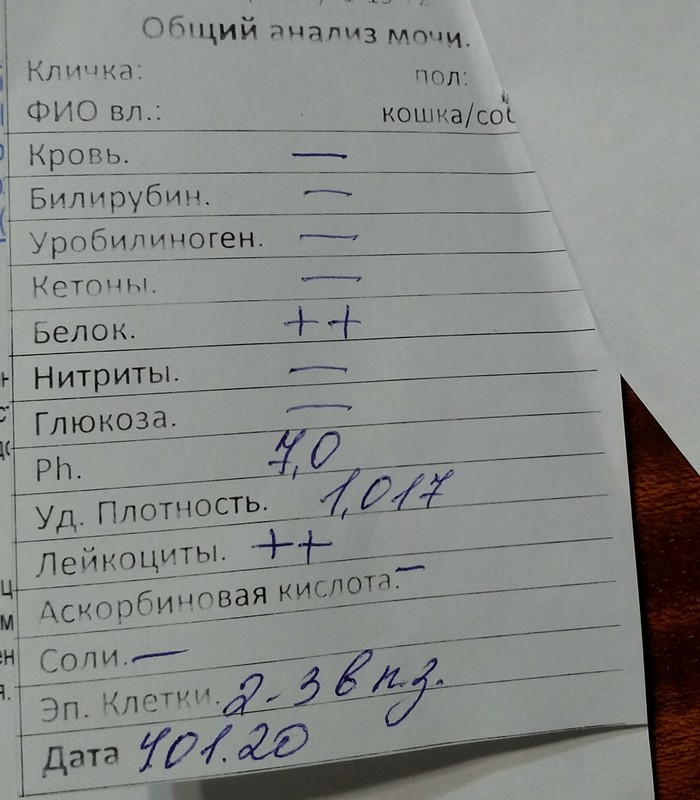 Общий анализ мочи.
Кличка: пол:
ФИО вл.: кошка/
Кровь. —
Билирубин. —
Уробилиноген. —
Кетоны. —
Белок. ++
Нитриты. —
Глюкоза. —
Ph. 7,0
Уд. Плотность. 1,017
Лейкоциты. ++
Аскорбиновая кислота. —
Соли. —
Эп. Клетки. 2-3 в п.з.
Дата